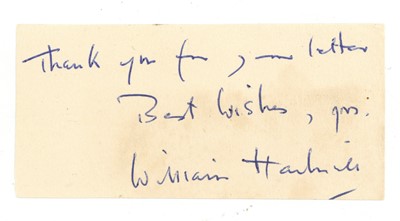 Thank you for your letter
Best Wishes, yrs:
William Hartnell